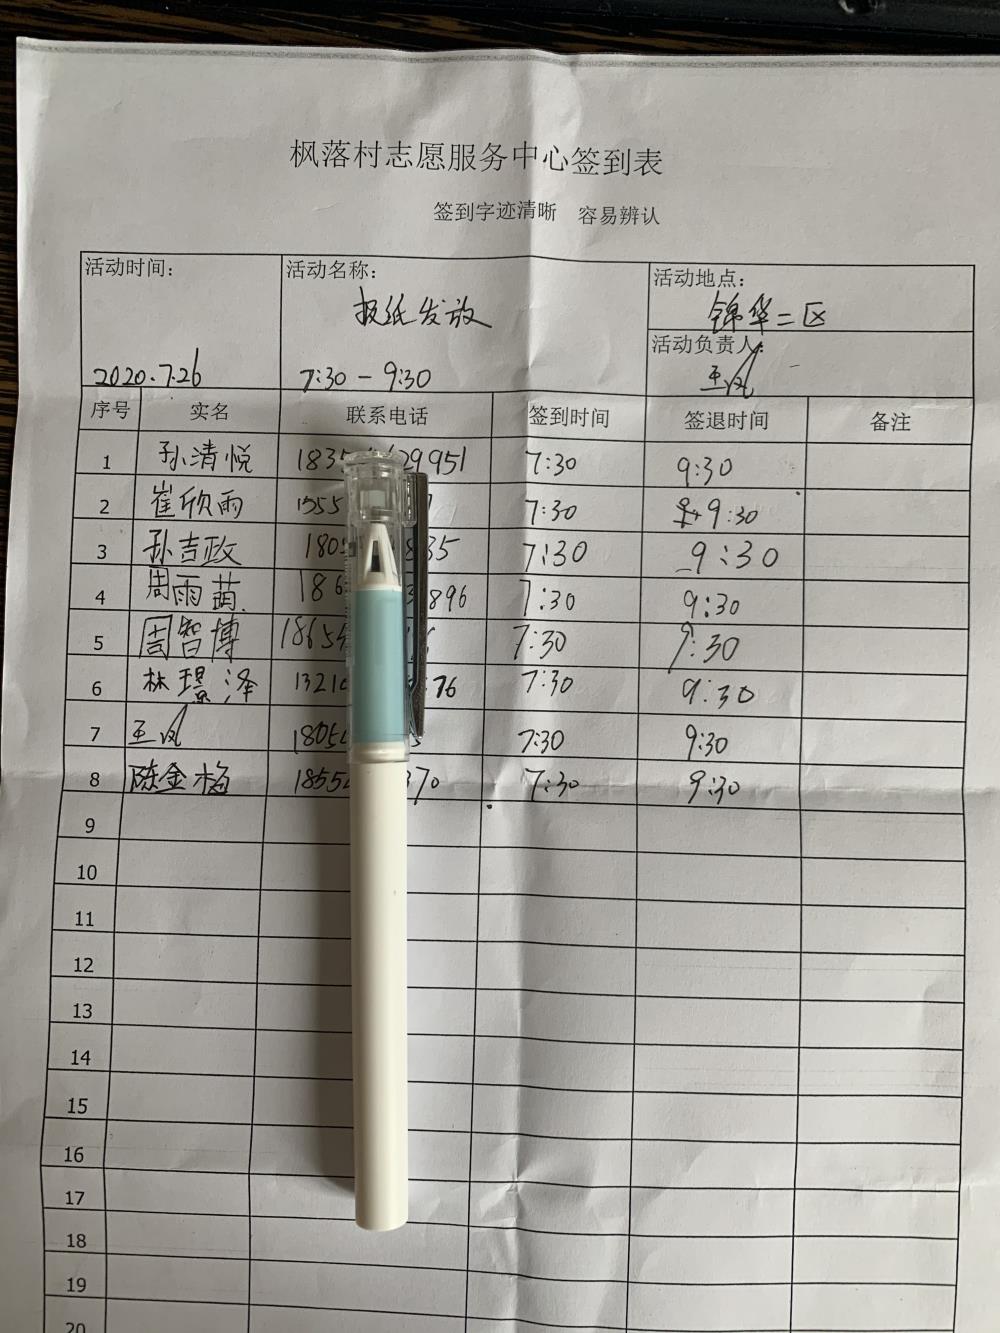 枫落村志愿服务中心签到表
签到字迹清晰 容易辨认
活动时间: 活动名称: 活动地点:
报纸发放 锦华二区
活动负责人:
2020.7.26 7:30-9:30 王凤
序号 实名 联系电话 签到时间 签退时间 备注
1 孙清悦 1835 29951 7:30 9:30
2 崔欣雨 1555 7:30 9:30
3 孙吉政 180 35 7:30 9:30
4 周雨萌 186 896 7:30 9:30
5 周智博 1865 7:30 9:30
6 林璟泽 1321 76 7:30 9:30
7 王凤 1805 7:30 9:30
8 陈金梅 1855 370 7:30 9:30
9
10
11
12
13
14
15
16
17
18
19
20